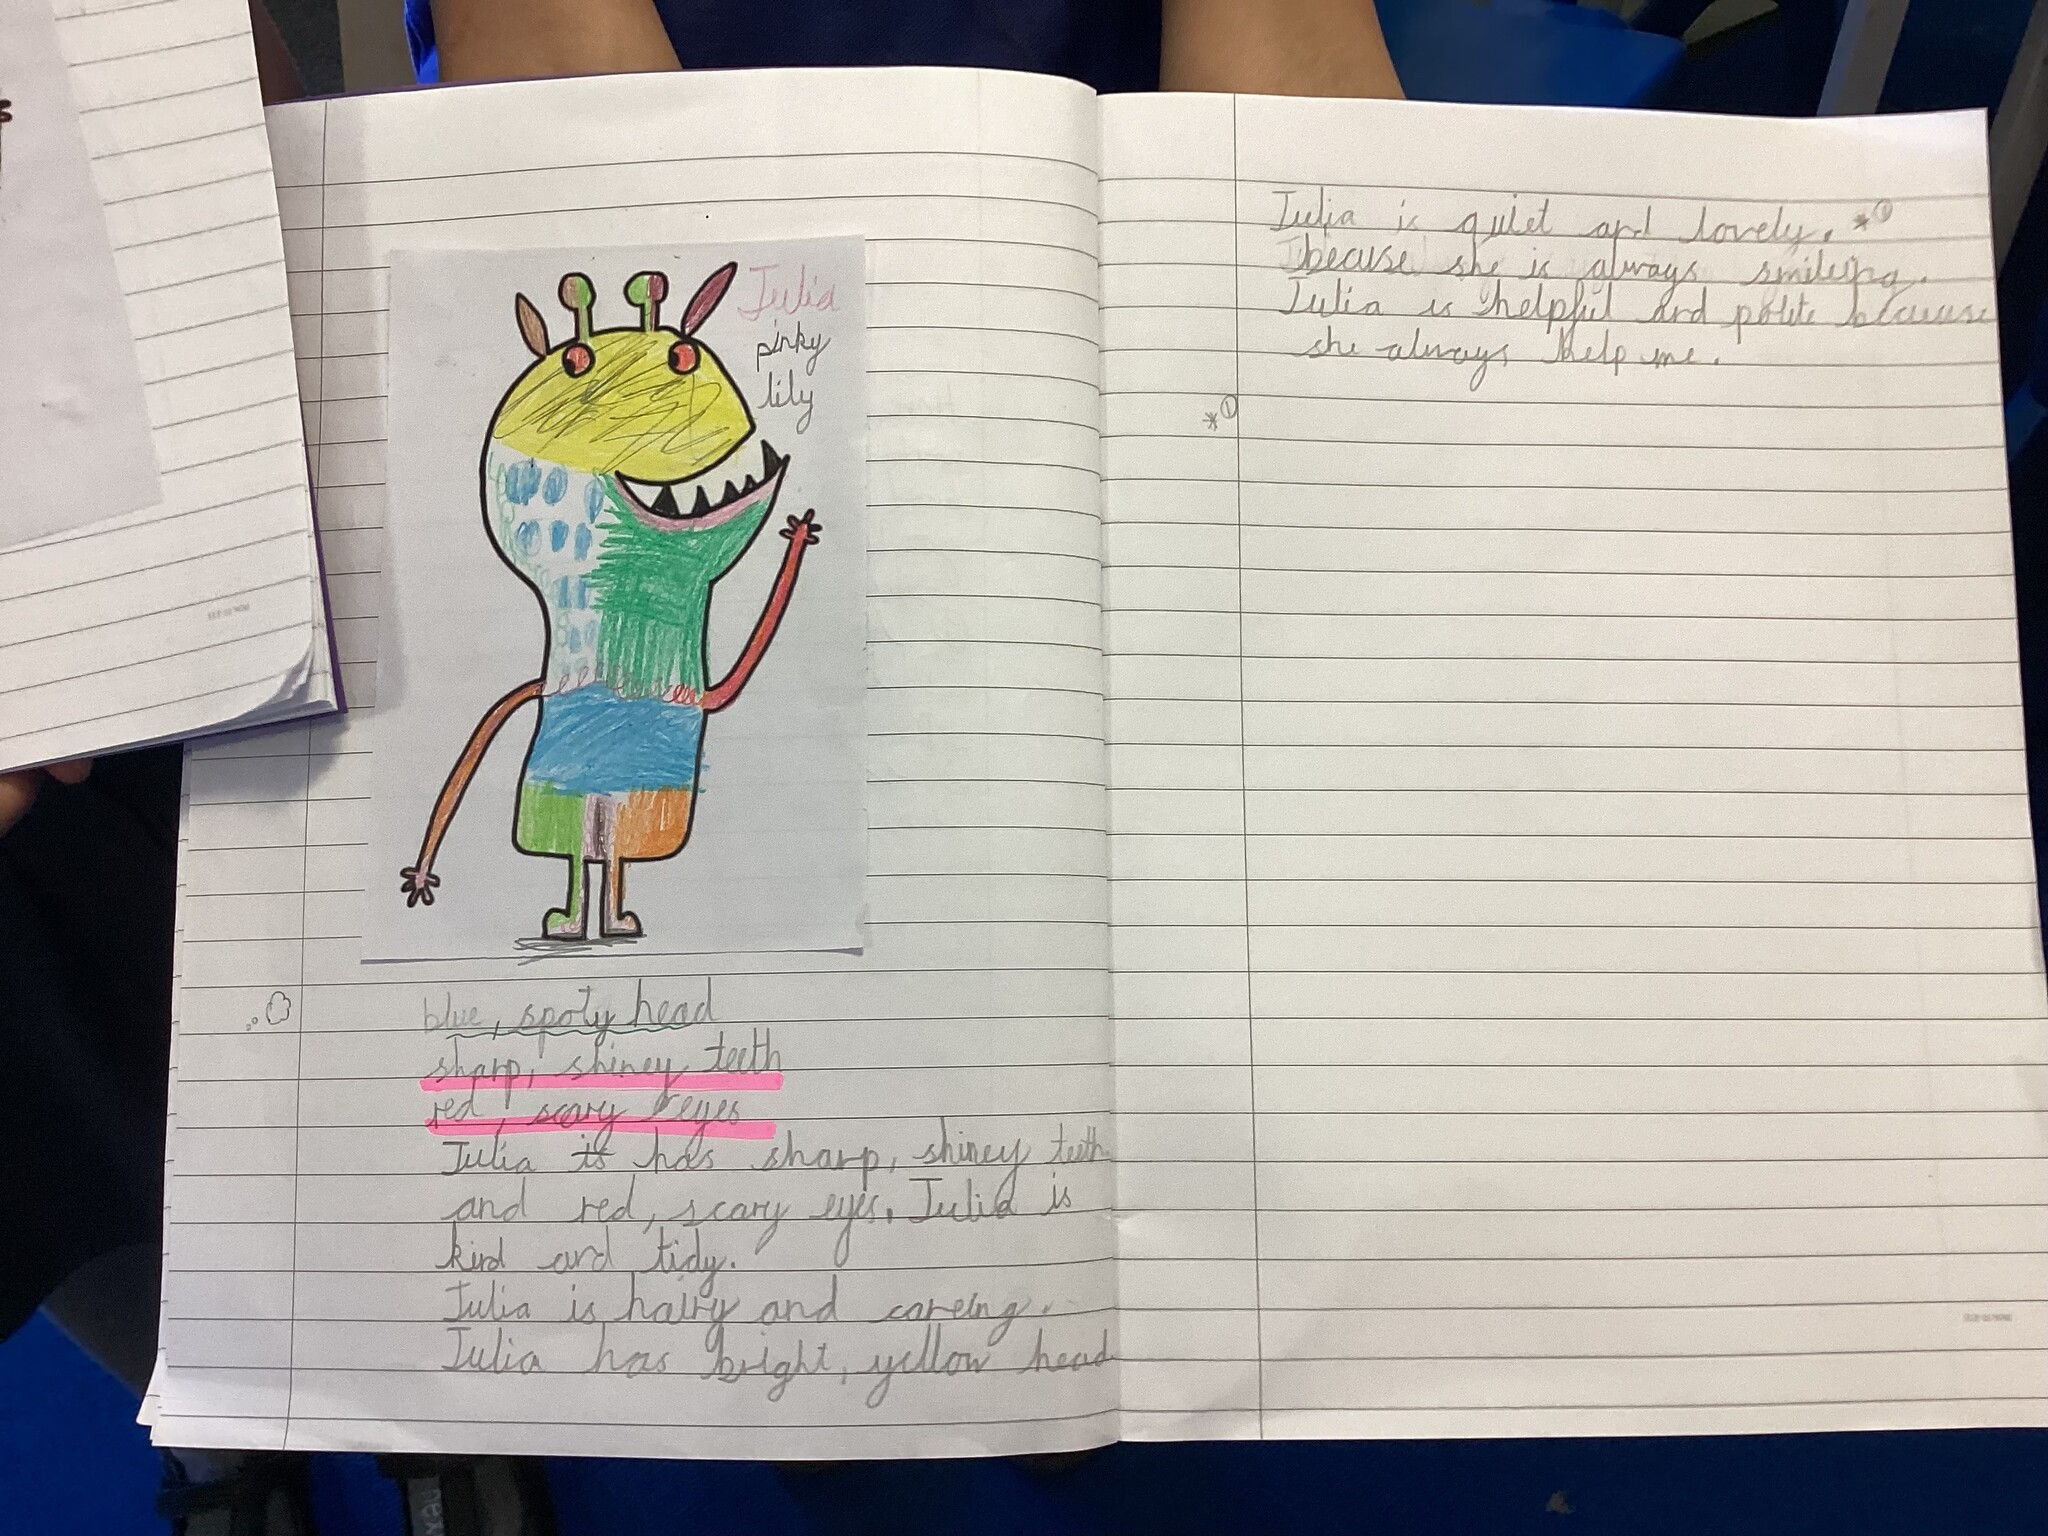 Julia
pinky
lily
blue, spoty head
sharp, shiney teeth
red, scary eyes
Julia is has sharp, shiney teeth
and red, scary eyes. Julia is
kind and tidy.
Julia is hairy and careing.
Julia has bright, yellow head
Julia is quiet and lovely. *①
because she is always smileing.
Julia is helpful and polite because
she always help me.
*①